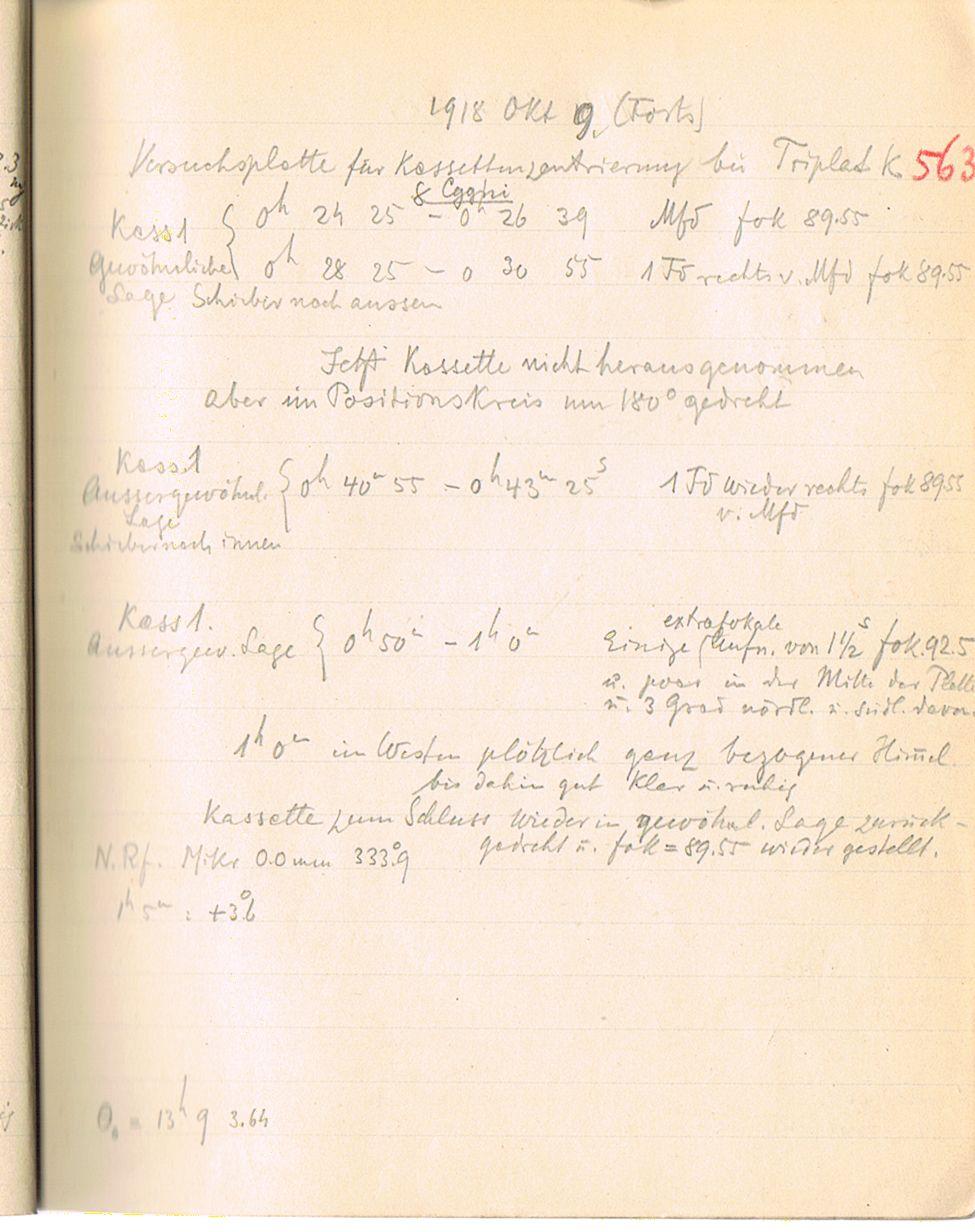 1918 Okt 9. (Forts)
Versuchsplatte für Kassettenzentrierung bei Triplet K 563
8 Cygni
Kass 1 { 0h 24 25 – 0h 26 39 Mfd fok 89.55
Gewöhnliche 0h 28 25 – 0 30 55 1 Fd rechts v. Mfd fok 89.55
Lage Schieber nach aussen
Jetzt Kassette nicht herausgenommen
aber im Positionskreis um 180° gedreht
Kass. 1
Aussergewöhnl. { 0h 40m 55 – 0h 43m 25s 1 Fd wieder rechts fok 8955
Lage v. Mfd
Schieber nach innen
Kass 1. extrafokale
Aussergew. Lage { 0h 50m – 1h 0m Einige Aufn. von 1 1/2s fok. 92.5
u. zwar in der Mitte der Platte
u. 3 Grad nördl. u. südl. davon.
1h 0m im Westen plötzlich ganz bezogener Himmel.
bis dahin gut klar u. ruhig
Kassette zum Schluss wieder in gewöhnl. Lage zurück-
gedreht u. fok = 89.55 wieder gestellt.
N. Rf. Mikr 0.0 mm 333°.9
1h 5m : +3°.6
= 13h 9 3.64